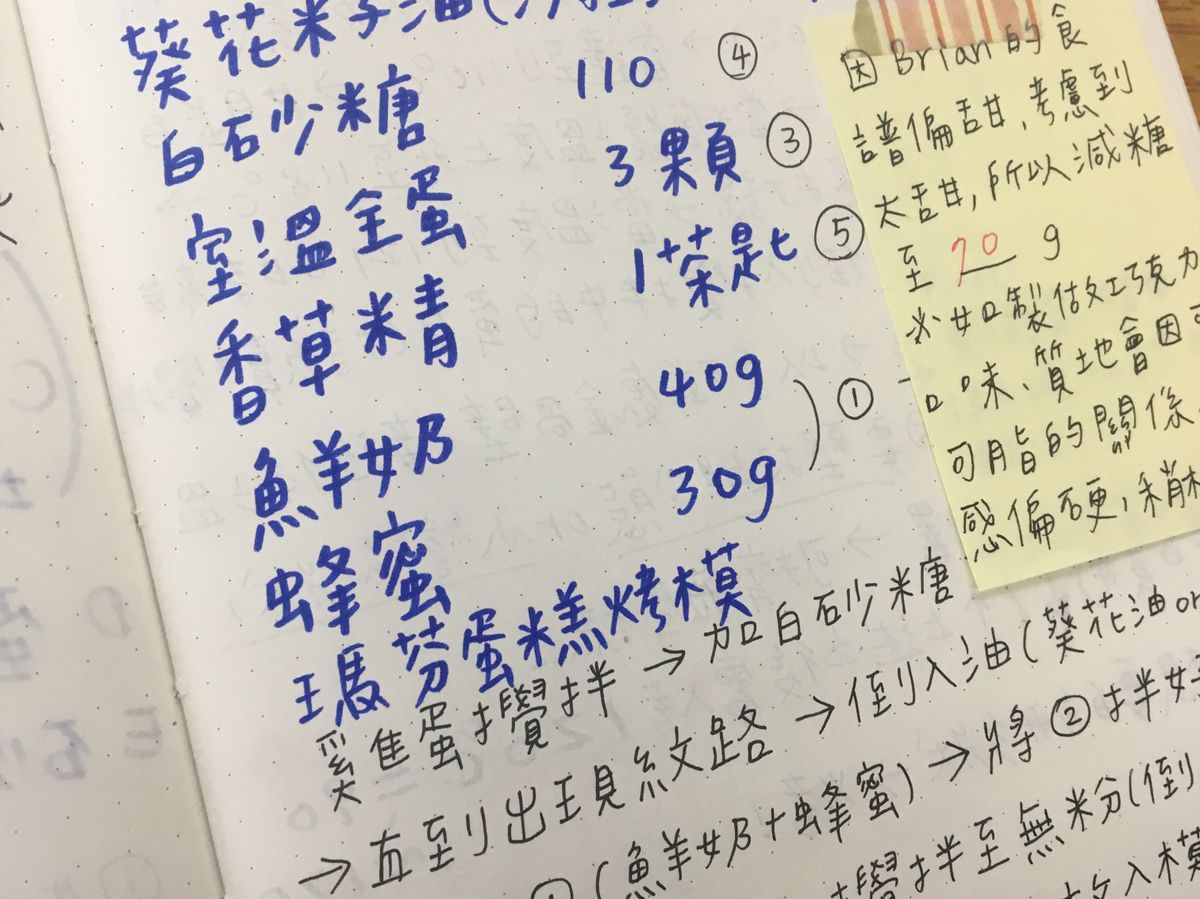 葵花籽油(
白砂糖 110 ④
室溫全蛋 3顆 ③
香草精 1茶匙 ⑤
鮮奶 40g ①
蜂蜜 30g
瑪芬蛋糕烤模
雞蛋攪拌 → 加白砂糖
→ 直到出現紋路 → 倒入油(葵花油or
①(鮮奶+蜂蜜) → 將②拌好
攪拌至無粉(倒
放入模
因Brian的食
譜偏甜,考慮到
太甜,所以減糖
至 70 g
※如製做巧克力
口味、質地會因可
可脂的關係
感偏硬,稍